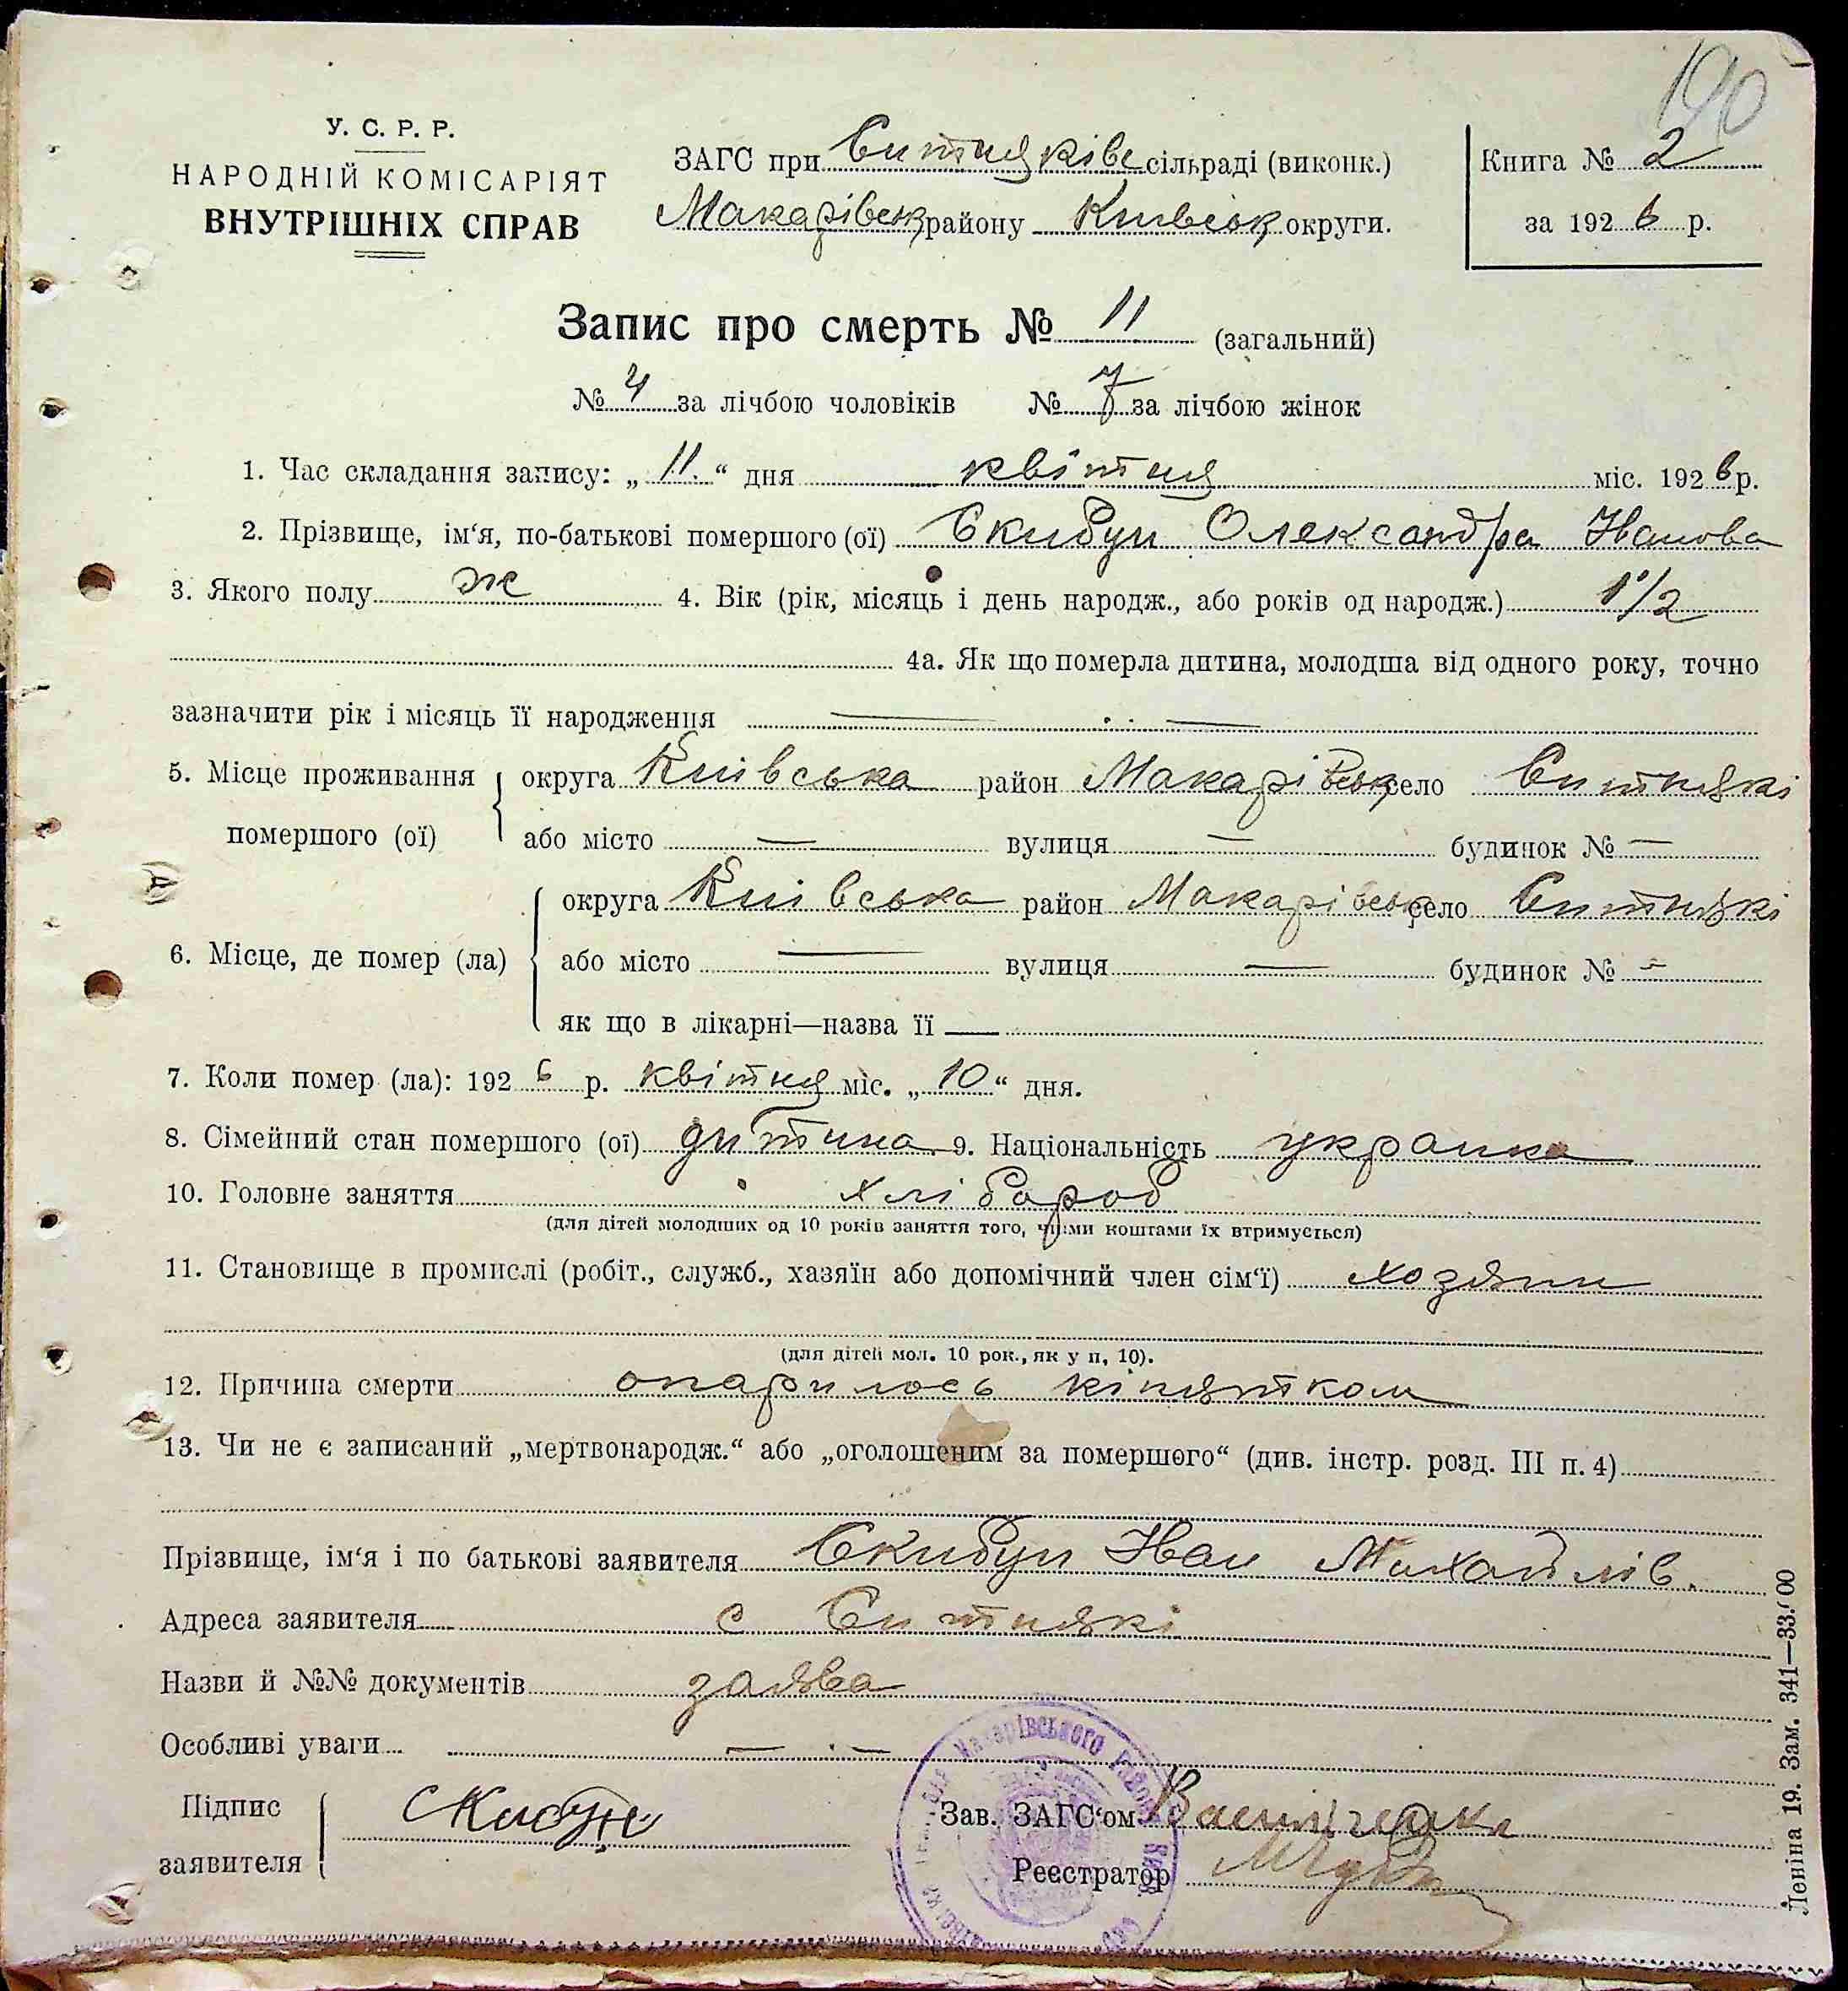 190
У. С. Р. Р.
НАРОДНІЙ КОМІСАРІЯТ
ВНУТРІШНІХ СПРАВ
ЗАГС при Ситняківс сільраді (виконк.)
Макарівськ району Київськ округи.
Книга № 2
за 1926 р.
Запис про смерть № 11 (загальний)
№ 4 за лічбою чоловіків № 7 за лічбою жінок
1. Час складання запису: „11.“ дня квітня міс. 1926 р.
2. Прізвище, ім‘я, по-батькові помершого (ої) Скибун Олександра Іванова
3. Якого полу ж 4. Вік (рік, місяць і день народж., або років од народж.) 1 1/2
4а. Як що померла дитина, молодша від одного року, точно
зазначити рік і місяць її народження —
5. Місце проживання помершого (ої) округа Київська район Макарівськ село Ситнякі
або місто — вулиця — будинок № —
6. Місце, де помер (ла) округа Київська район Макарівськ село Ситнякі
або місто — вулиця — будинок № —
як що в лікарні—назва її —
7. Коли помер (ла): 1926 р. квітня міс. „10“ дня.
8. Сімейний стан помершого (ої) дитина 9. Національність украинка
10. Головне заняття хлібороб
(для дітей молодших од 10 років заняття того, чиїми коштами їх втримується)
11. Становище в промислі (робіт., служб., хазяїн або допомічний член сім‘ї) хозяин
(для дітей мол. 10 рок., як у п, 10).
12. Причина смерти опарилось кіпятком
13. Чи не є записаний „мертвонародж.“ або „оголошеним за помершого“ (див. інстр. розд. III п. 4)
Прізвище, ім‘я і по батькові заявителя Скибун Іван Михайлів.
Адреса заявителя с Ситнякі
Назви й №№ документів заява
Особливі уваги — . —
Підпис заявителя Скибун
Зав. ЗАГС‘ом
Реєстратор
Макарівського району
Леніна 19. Зам. 341—33.000